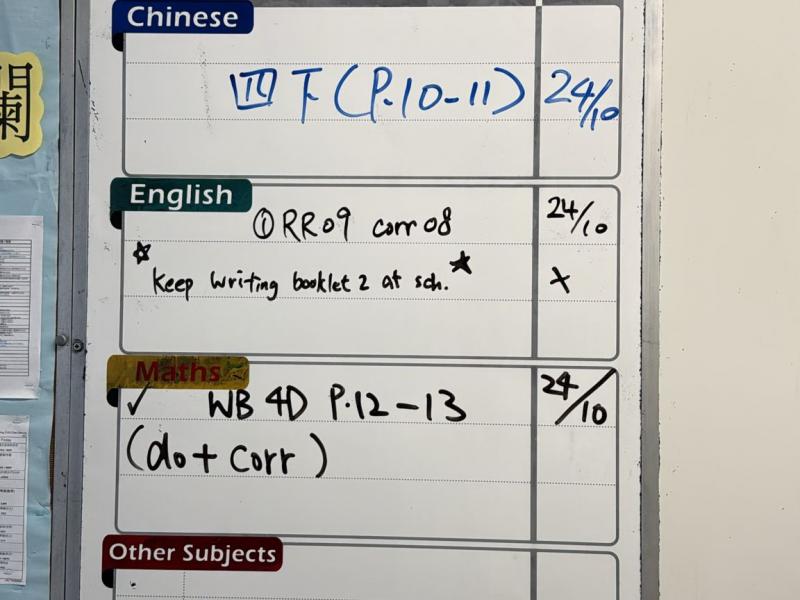 Chinese
四下(P.10-11) 24/10
English
①RR09 corr08 24/10
☆Keep Writing booklet 2 at sch.★ ×
Maths
✓ WB 4D P.12-13 24/10
(do+corr)
Other Subjects
闌